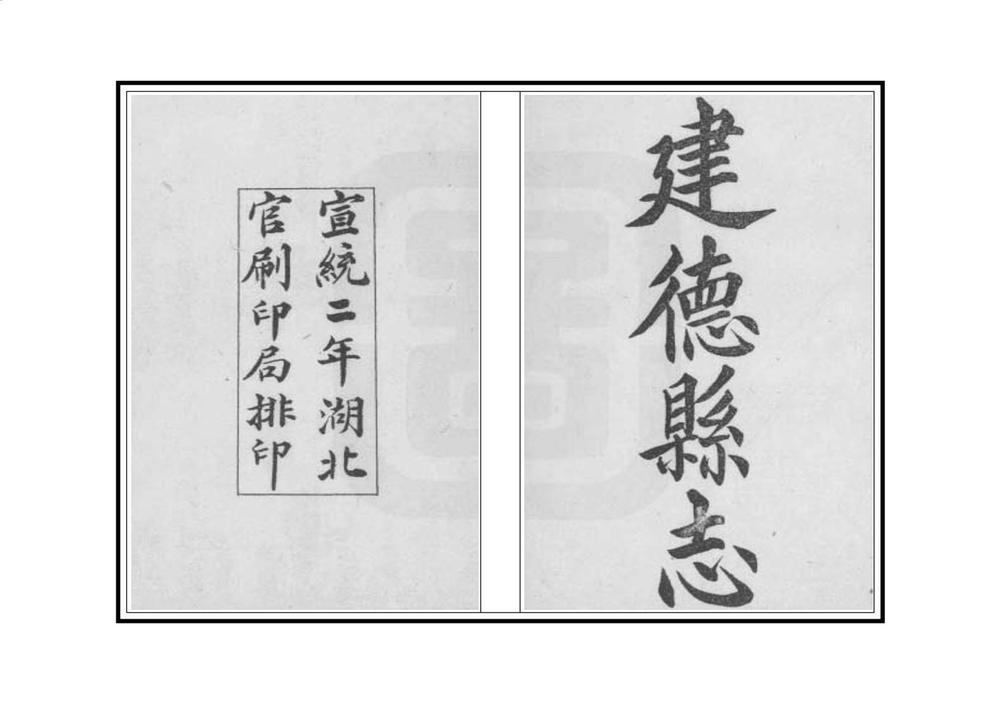 建德縣志
宣統二年湖北
官刷印局排印